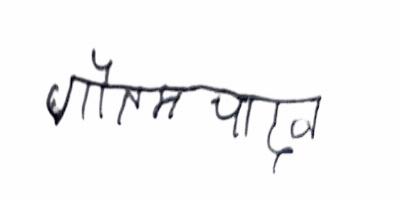 गौतम यादव